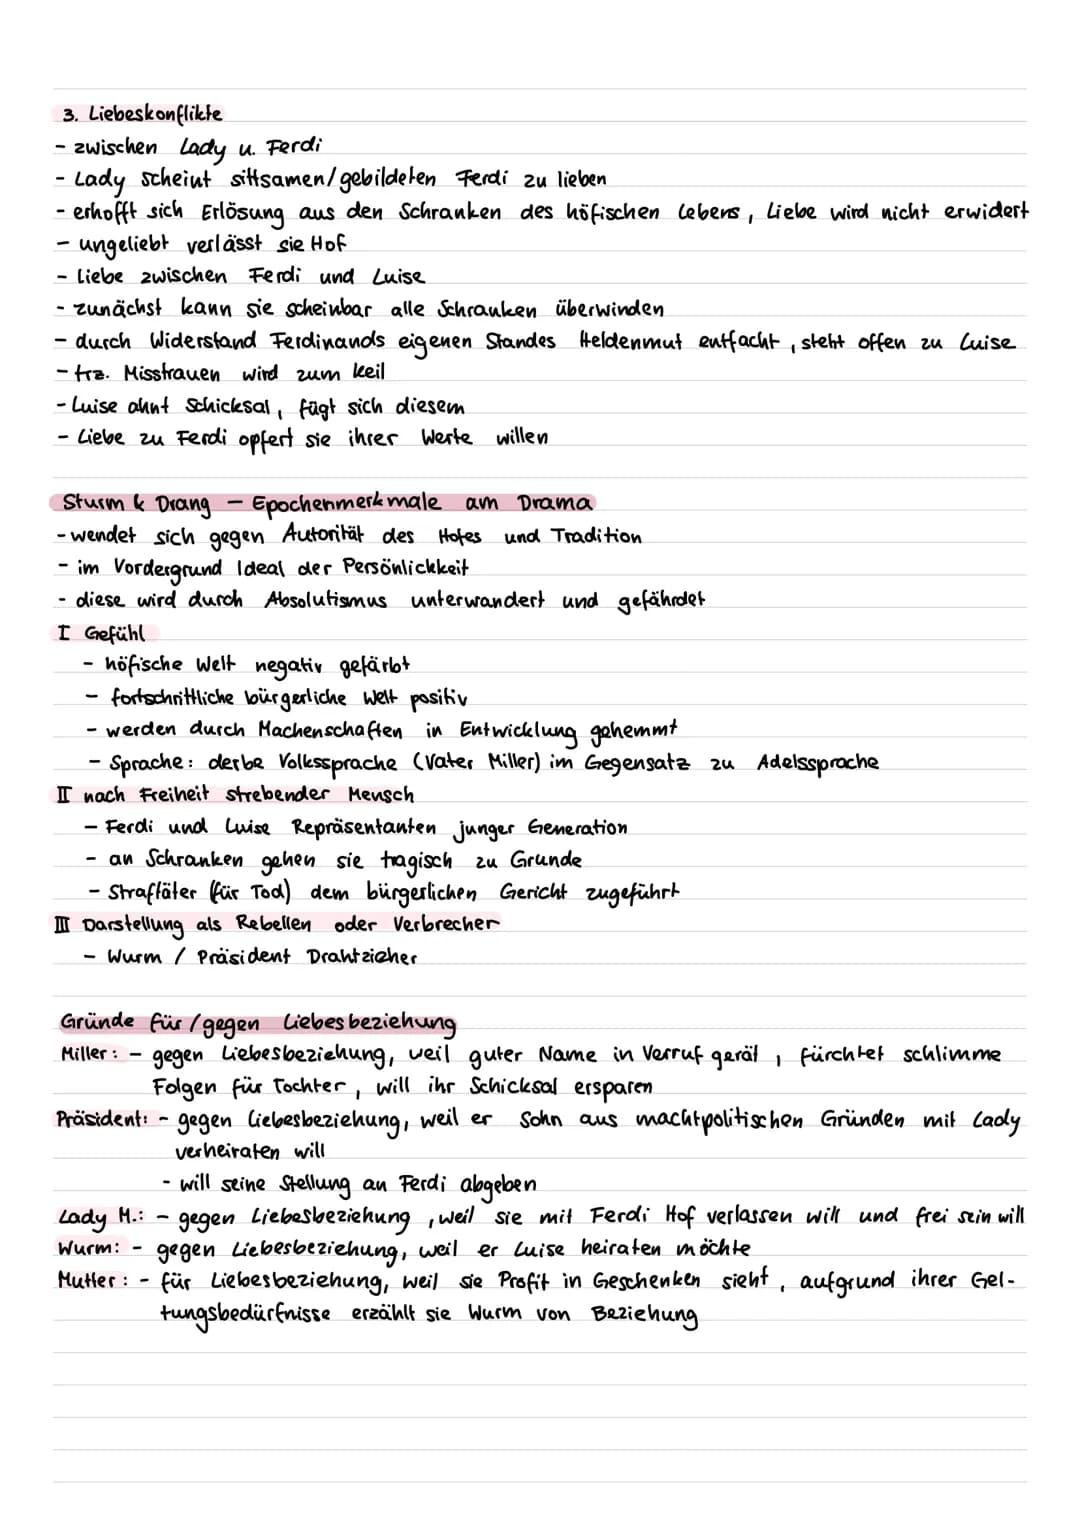 3. Liebeskonflikte
- zwischen Lady u. Ferdi
- Lady scheint sittsamen/gebildeten Ferdi zu lieben
- erhofft sich Erlösung aus den Schranken des höfischen Lebens, Liebe wird nicht erwidert
- ungeliebt verlässt sie Hof
- Liebe zwischen Ferdi und Luise
- zunächst kann sie scheinbar alle Schranken überwinden
- durch Widerstand Ferdinands eigenen Standes Heldenmut entfacht, steht offen zu Luise
- trz. Misstrauen wird zum Keil
- Luise ahnt Schicksal, fügt sich diesem
- Liebe zu Ferdi opfert sie ihrer Werte willen
Sturm & Drang - Epochenmerkmale am Drama
- wendet sich gegen Autorität des Hofes und Tradition
- im Vordergrund Ideal der Persönlickkeit
- diese wird durch Absolutismus unterwandert und gefährdet
I Gefühl
- höfische Welt negativ gefärbt
- fortschrittliche bürgerliche Welt positiv
- werden durch Machenschaften in Entwicklung gehemmt
- Sprache: derbe Volkssprache (Vater Miller) im Gegensatz zu Adelssprache
II nach Freiheit strebender Mensch
- Ferdi und Luise Repräsentanten junger Generation
- an Schranken gehen sie tragisch zu Grunde
- Straftäter (für Tod) dem bürgerlichen Gericht zugeführt
III Darstellung als Rebellen oder Verbrecher
- Wurm / Präsident Drahtzieher
Gründe für/gegen Liebesbeziehung
Miller: - gegen Liebesbeziehung, weil guter Name in Verruf gerät, fürchtet schlimme
Folgen für Tochter, will ihr Schicksal ersparen
Präsident: - gegen Liebesbeziehung, weil er Sohn aus machtpolitischen Gründen mit Lady
verheiraten will
- will seine Stellung an Ferdi abgeben
Lady M.: - gegen Liebesbeziehung, weil sie mit Ferdi Hof verlassen will und frei sein will
Wurm: - gegen Liebesbeziehung, weil er Luise heiraten möchte
Mutter: - für Liebesbeziehung, weil sie Profit in Geschenken sieht, aufgrund ihrer Gel-
tungsbedürfnisse erzählt sie Wurm von Beziehung